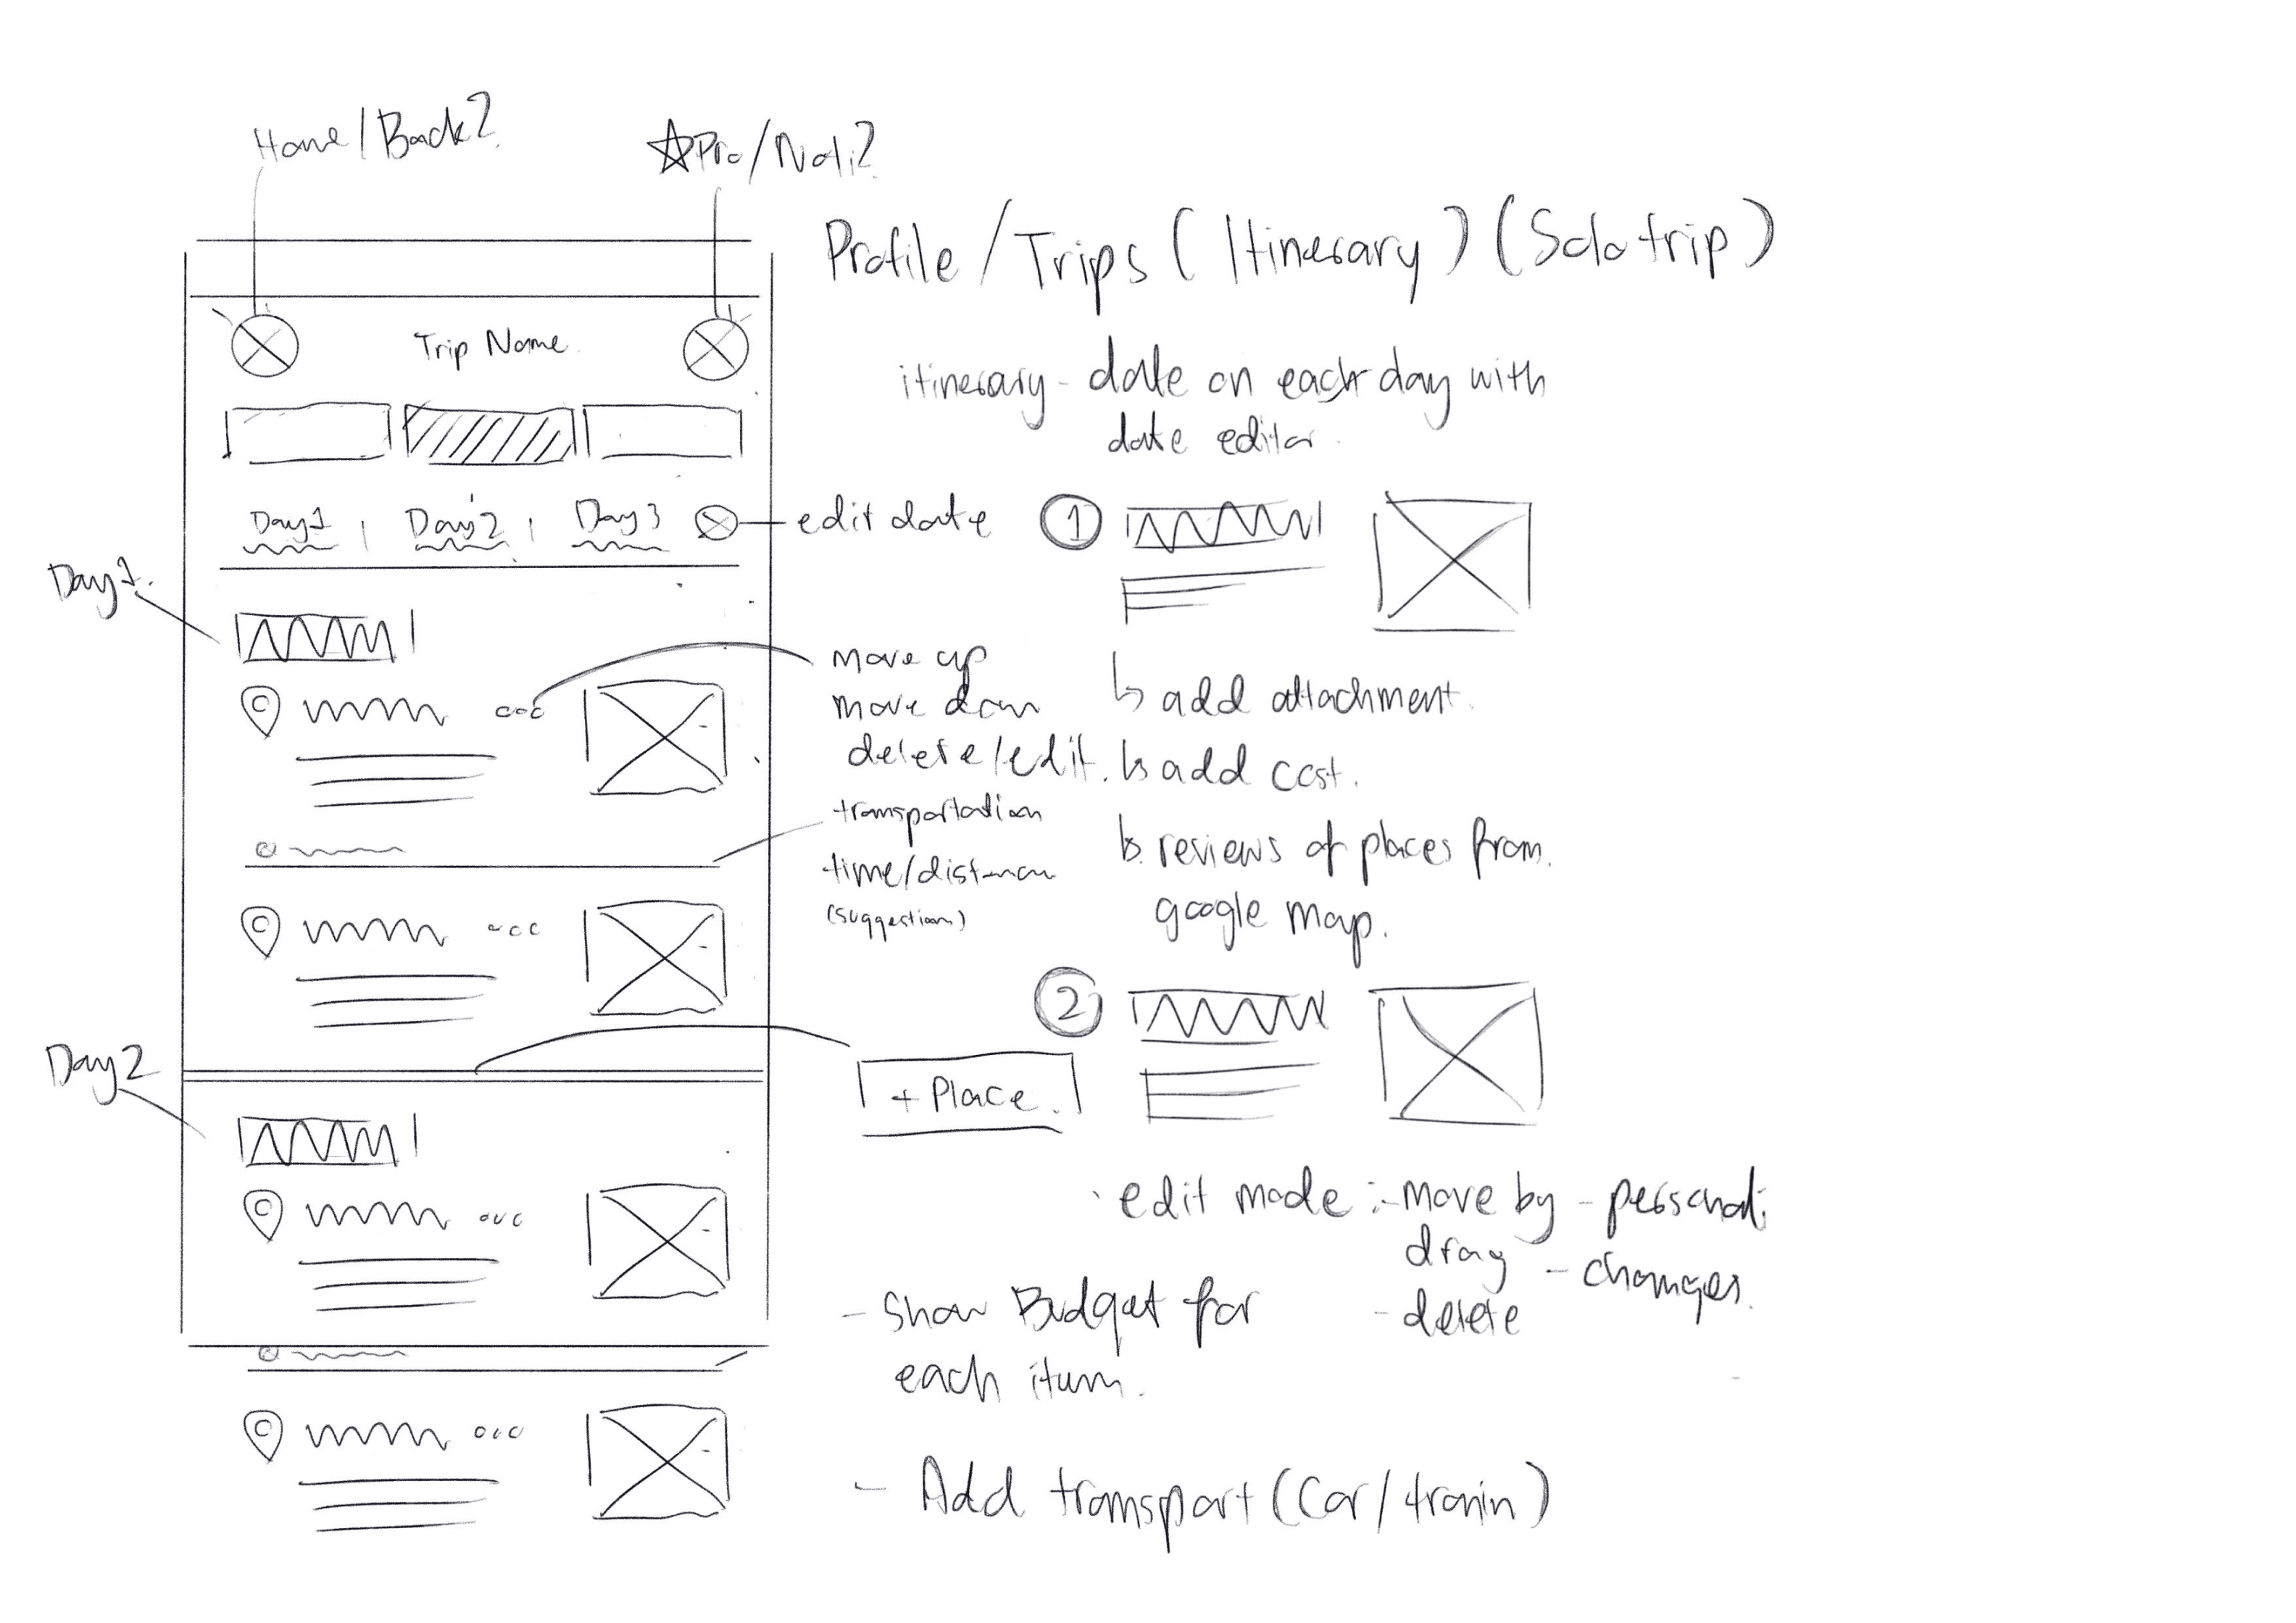 Home/Back?
☆Pro/Noti?
Profile/Trips (Itinerary) (Solo trip)
Trip Name
itinerary - date on each day with
date editor
Day1 | Day2 | Day3
edit date
1
Day1.
move up
move down
delete/edit.
↳ add attachment.
↳ add cost.
transportation
time/distance
(suggestion)
↳ reviews of places from
google map.
2
Day2
+ Place.
edit mode : - move by
drag
- delete
- personal
- changes.
- Show Budget for
each itum.
- Add transport (Car/train)